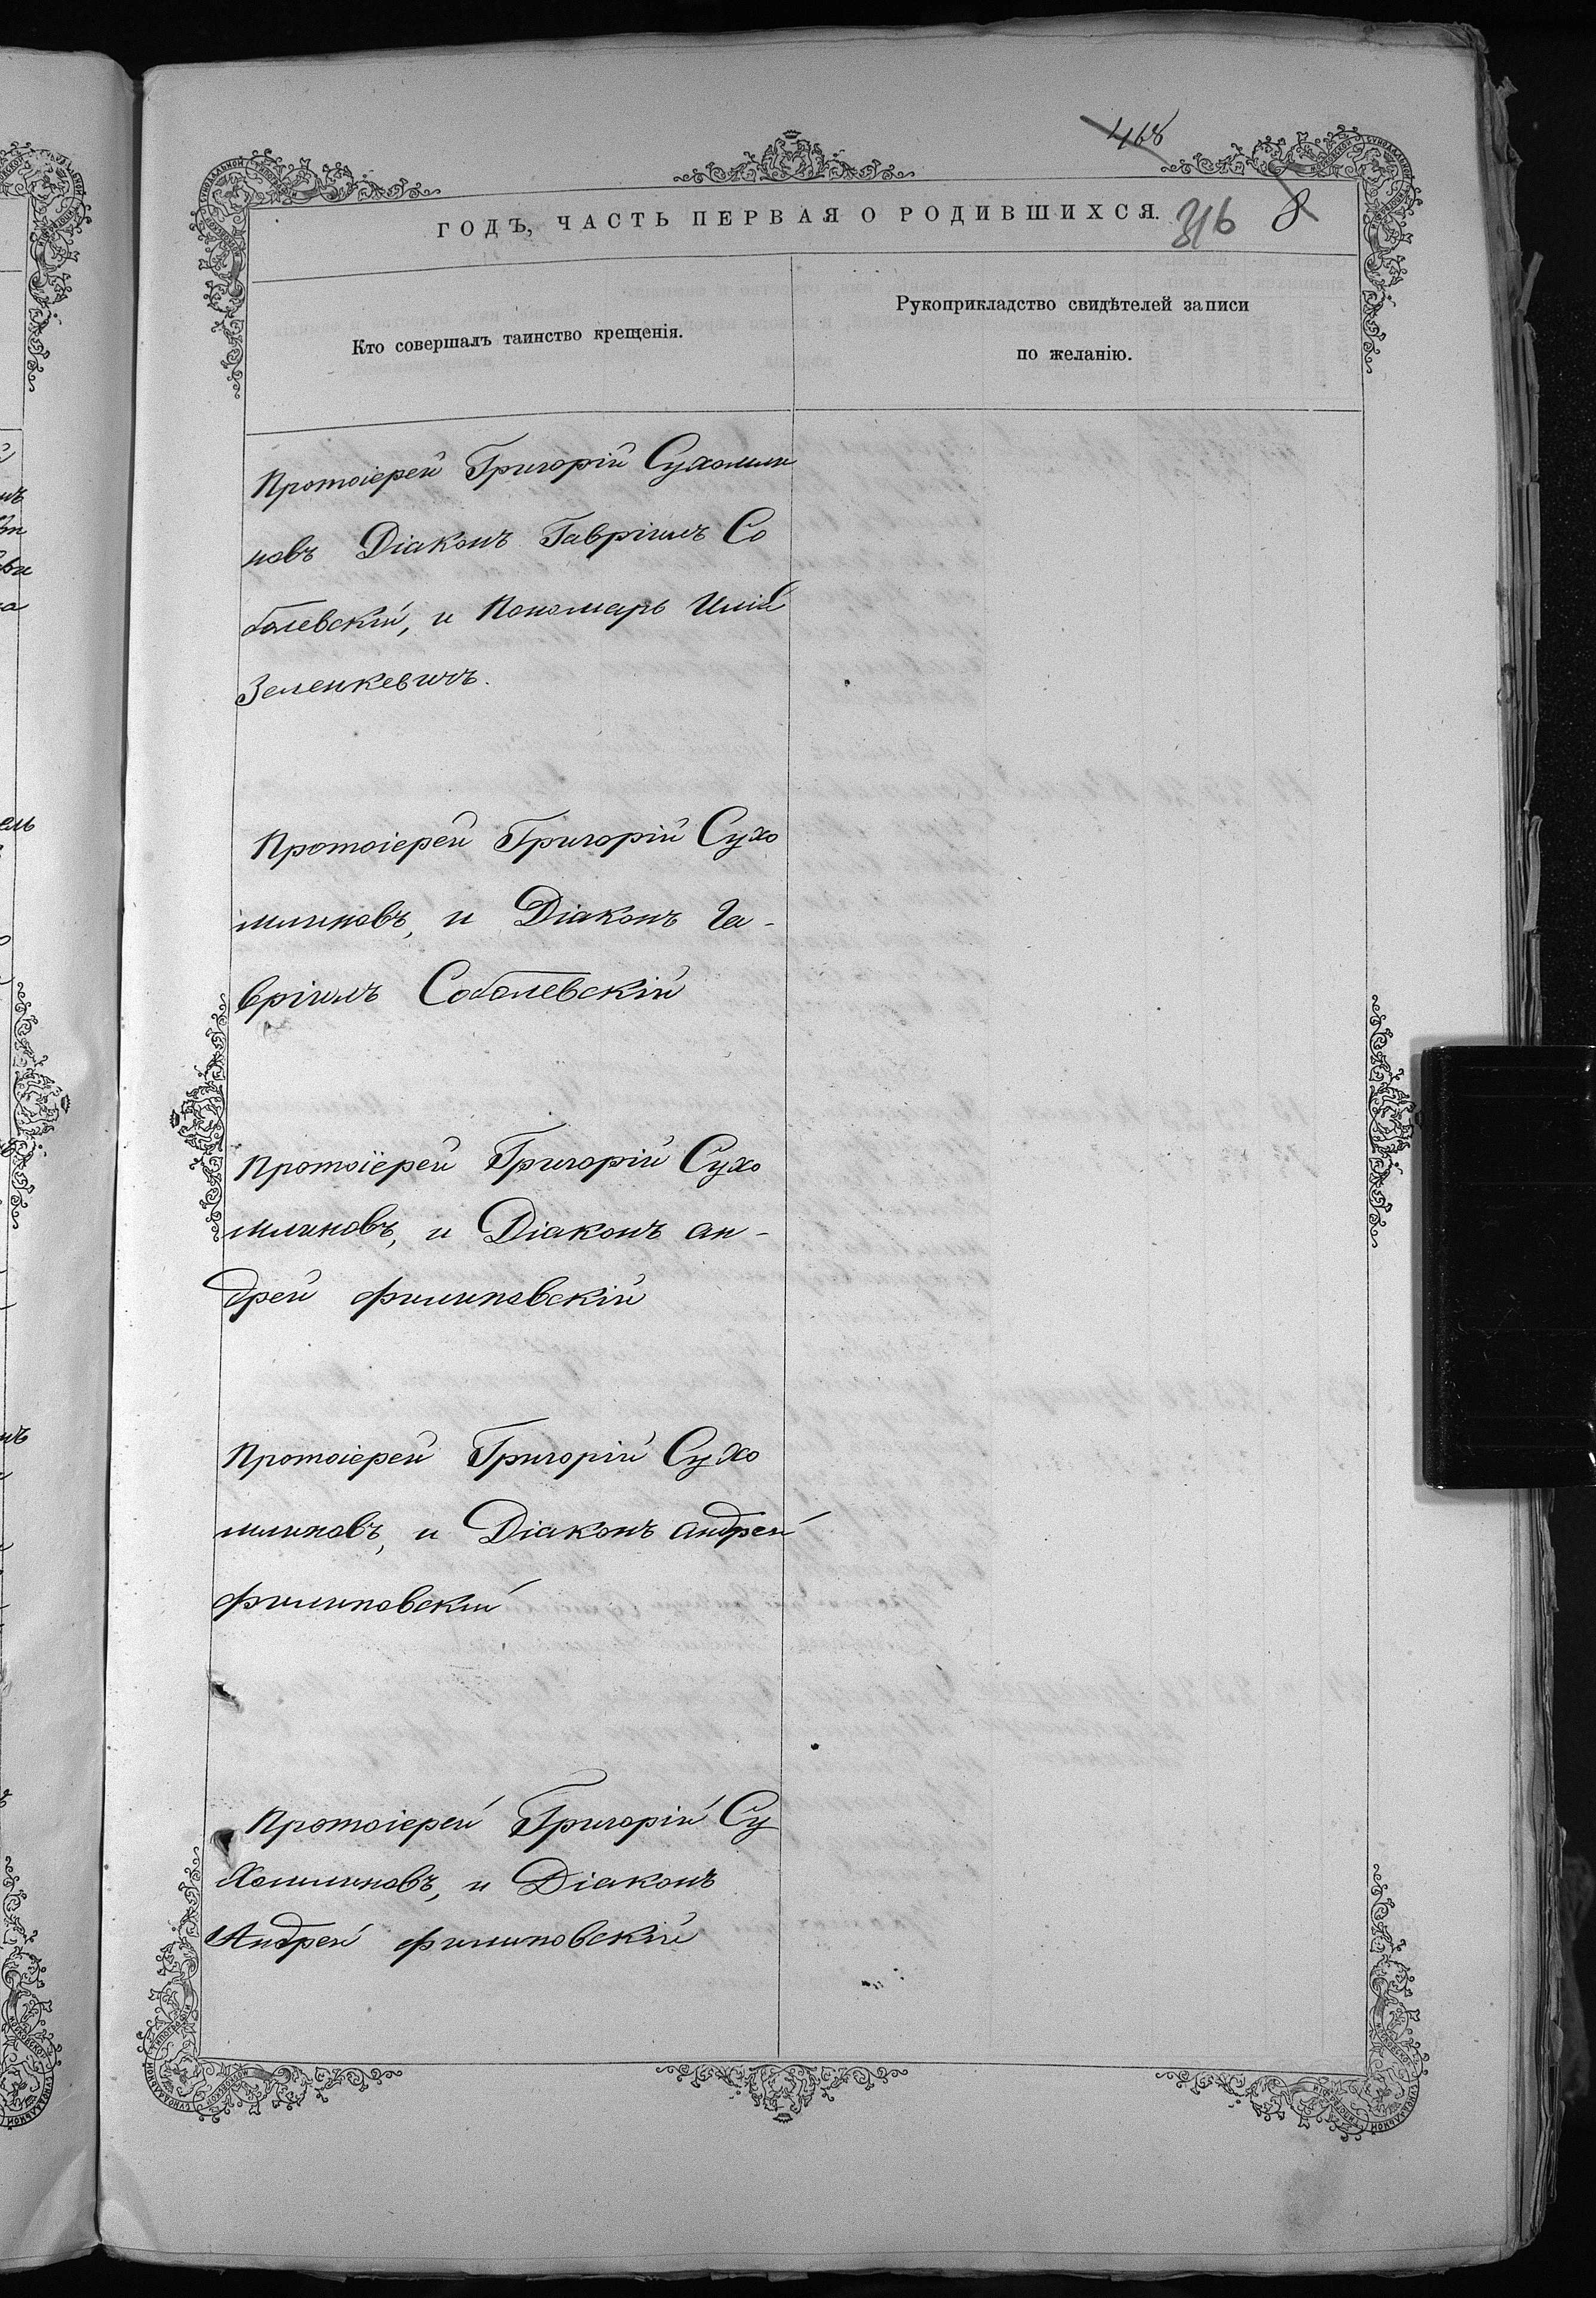 468
ГОДЪ, ЧАСТЬ ПЕРВАЯ О РОДИВШИХСЯ.
316 8
Кто совершалъ таинство крещенія.
Рукоприкладство свидѣтелей записи
по желанію.
Протоіерей Григорій Сухомли
новъ Діаконъ Гавріилъ Со
болевскій, и Пономарь
Зеленкевичъ.
Протоіерей Григорій Сухо
млиновъ, и Діаконъ Га-
вріилъ Соболевскій
Протоіерей Григорій Сухо
млиновъ, и Діаконъ ан-
дрей филиповскій
Протоіерей Григорій Сухо
млиновъ, и Діаконъ андрей
филиповскій
Протоіерей Григорій Су
хомлиновъ, и Діаконъ
Андрей филиповскій